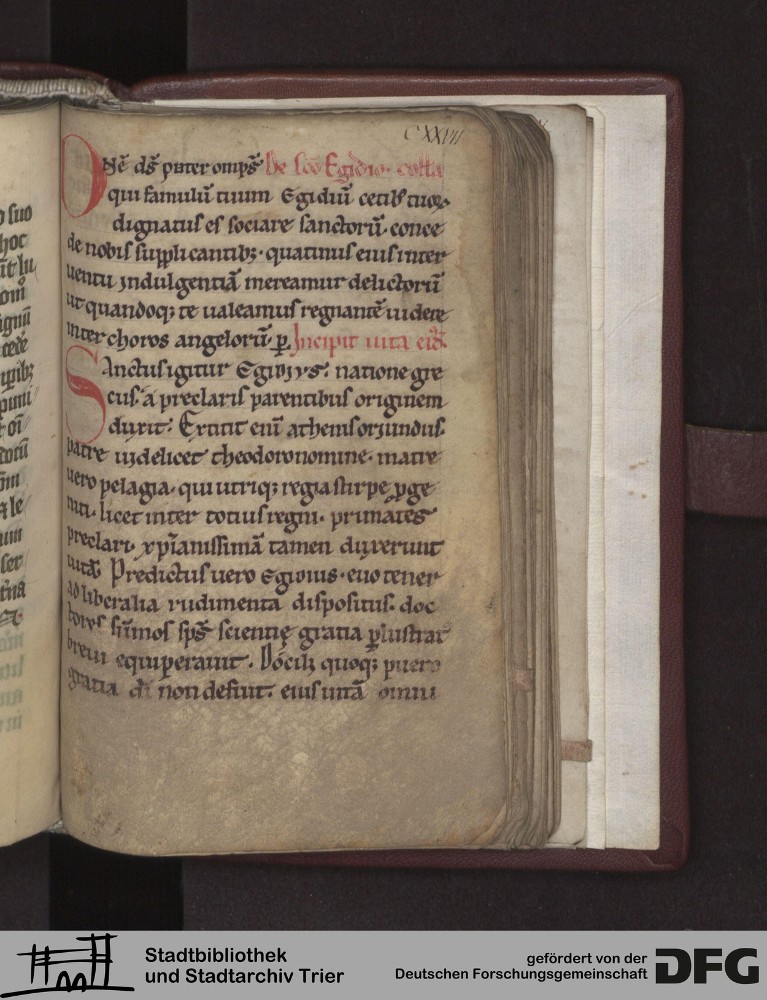 CXXVII
Dn̄e ds̄ pater omp̄s De sc̄o Egidio. colla
qui famulū tuum Egidiū celibꝰ tuoꝝ
dignatus es sociare sanctorū. conce
de nobis supplicantibꝫ. quatinus eius inter
uentu indulgentiā mereamur delictorū
ut quandoqꝫ te ualeamus regnantē uidere
inter choros angelorū. ꝑ. Incipit uita eiꝰ.
Sanctus igitur Egidius. natione gre
cus. a preclaris parentibus originem
duxit. Extitit enī athenis oriundus.
patre uidelicet theodoro nomine. matre
uero pelagia. qui utriqꝫ regia stirpe ꝓge
niti. licet inter totius regni. primates
preclari. xp̄ianissimā tamen duxerunt
uitā. Predictus uero egidius. euo tener
ad liberalia rudimenta dispositus. doc
tores sūmos sp̄s scientię gratia ꝑlustrat
breui equiperauit. Docili quoqꝫ puero
gratia di non defuit. eius uitā omniū
o suo
hoc
Stadtbibliothek
und Stadtarchiv Trier
gefördert von der
Deutschen Forschungsgemeinschaft
DFG